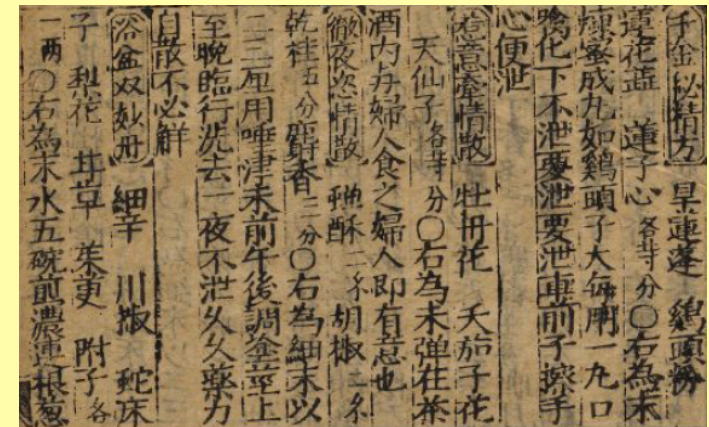 千金秘精方 旱蓮蓬 鷄頭粉
蓮花蕋 蓮子心各等分〇右為末
煉蜜成丸如鷄頭子大每用一丸口
噙化下不泄要泄車前子擦手
心便泄
惹意牽情散 牡丹花 夭茄子花
天仙子各等分〇右為末弹在茶
酒内与婦人食之婦人即有意也
徹夜恣情散 胡椒
乾桂五分 麝香二分〇右為細末以
二三厘用唾津未前午後調塗莖上
至晚臨行洗去一夜不泄久久藥力
自散不必解
浴盆双妙丹 細辛 川椒 蛇床
子 梨花 甘草 茱萸 附子各
一两〇右為末水五碗煎濃連根葱